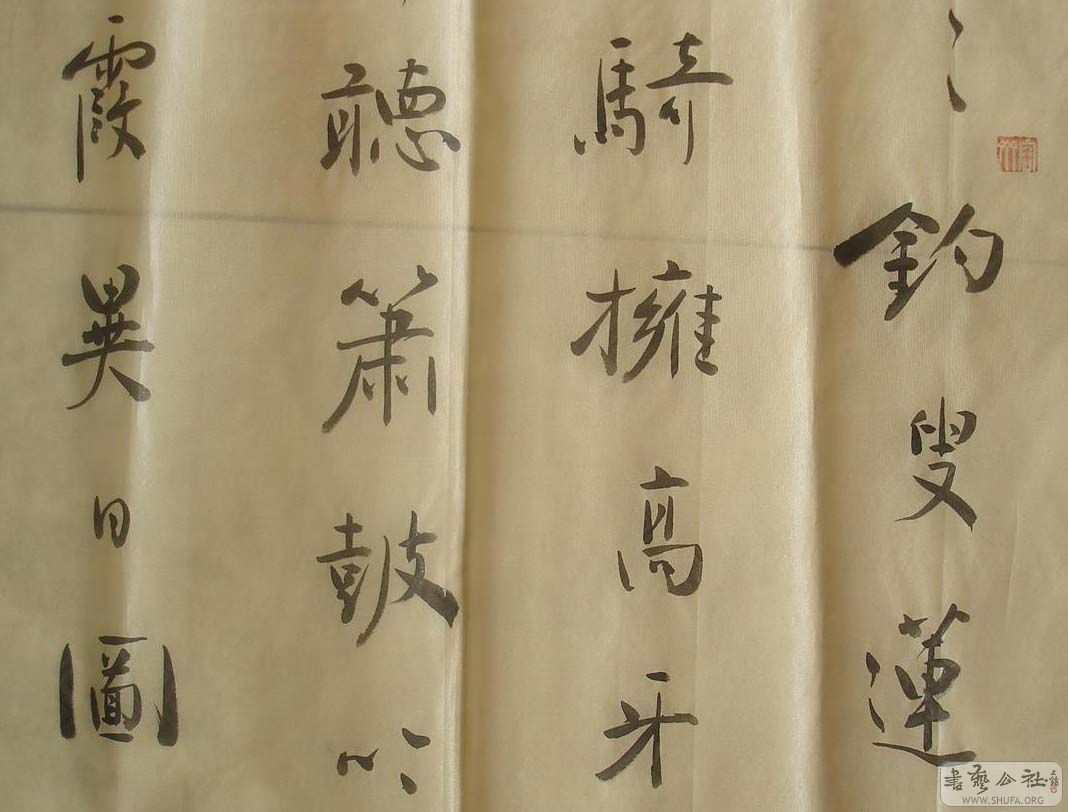 釣叟蓮
騎擁高牙
聽簫鼓
霞異日圖
書藝公社
WWW.SHUFA.ORG